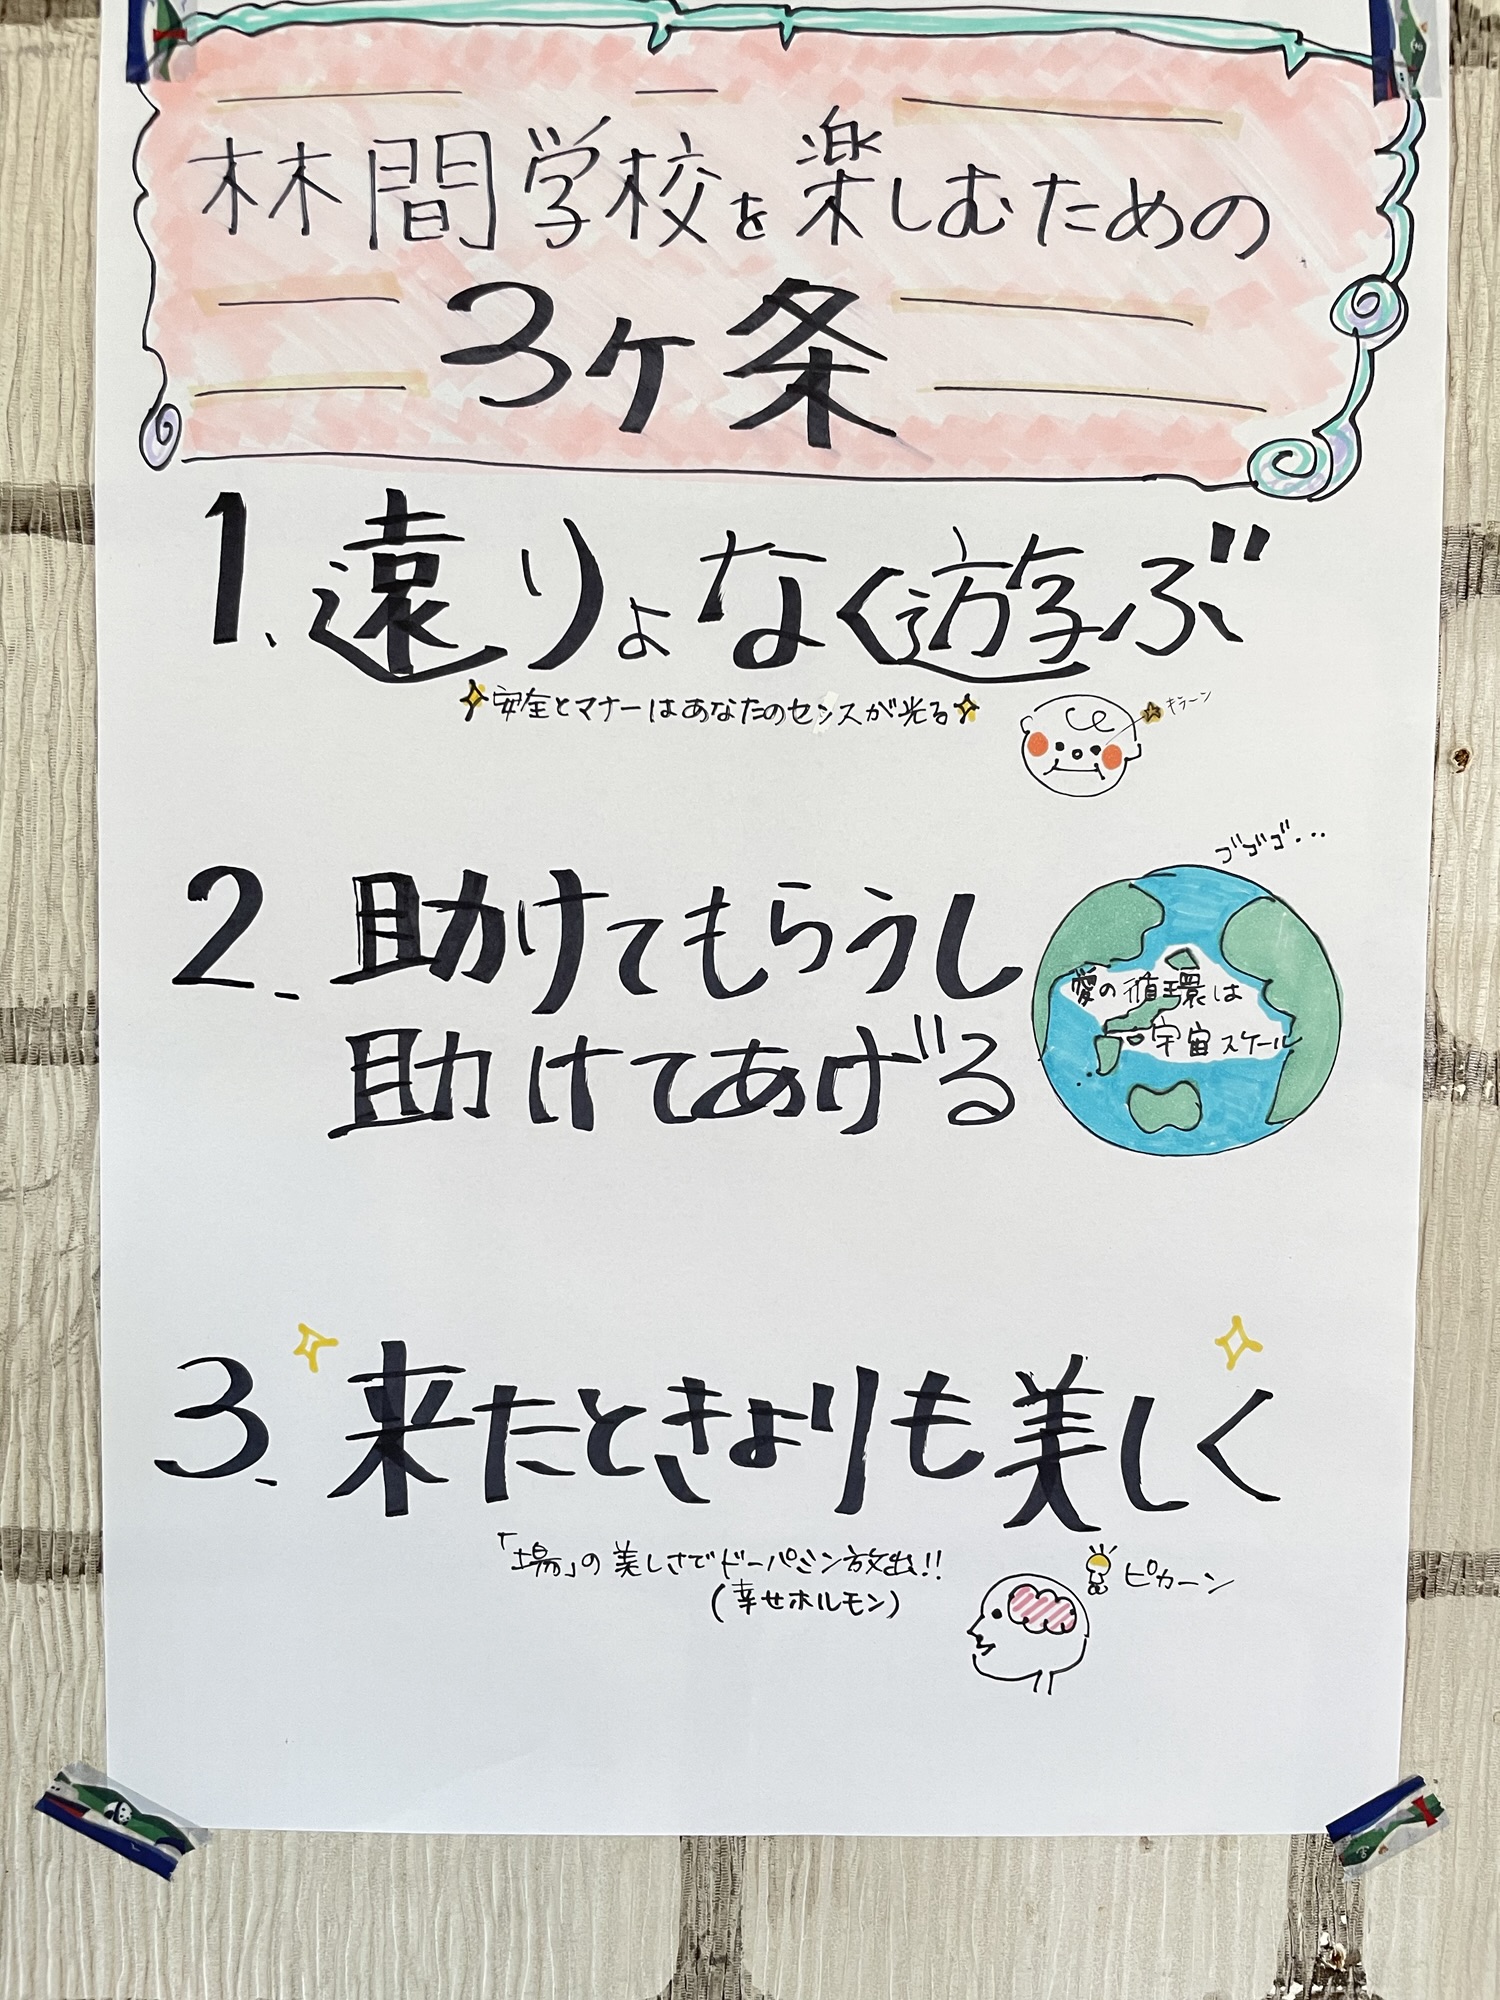 林間学校を楽しむための
3ヶ条
1、遠りょなく遊ぶ
安全とマナーはあなたのセンスが光る
キラーン
ゴゴゴ・・・
2、助けてもらうし
助けてあげる
愛の循環は
宇宙スケール
3、来たときよりも美しく
「場」の美しさでドーパミン放出!!
(幸せホルモン)
ピカーン